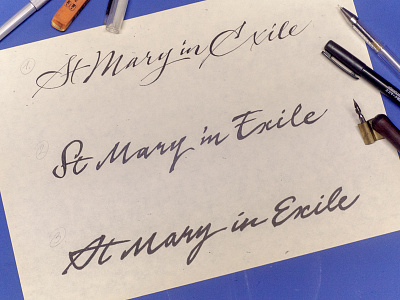 St Mary in Exile
St Mary in Exile
St Mary in Exile